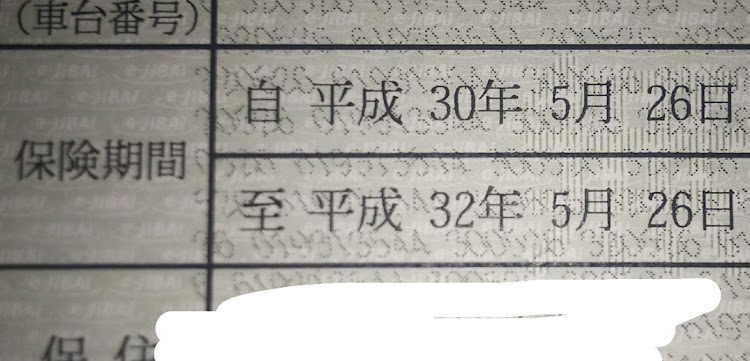 (車台番号)
保険期間
自 平成 30年 5月 26日
至 平成 32年 5月 26日
保 住